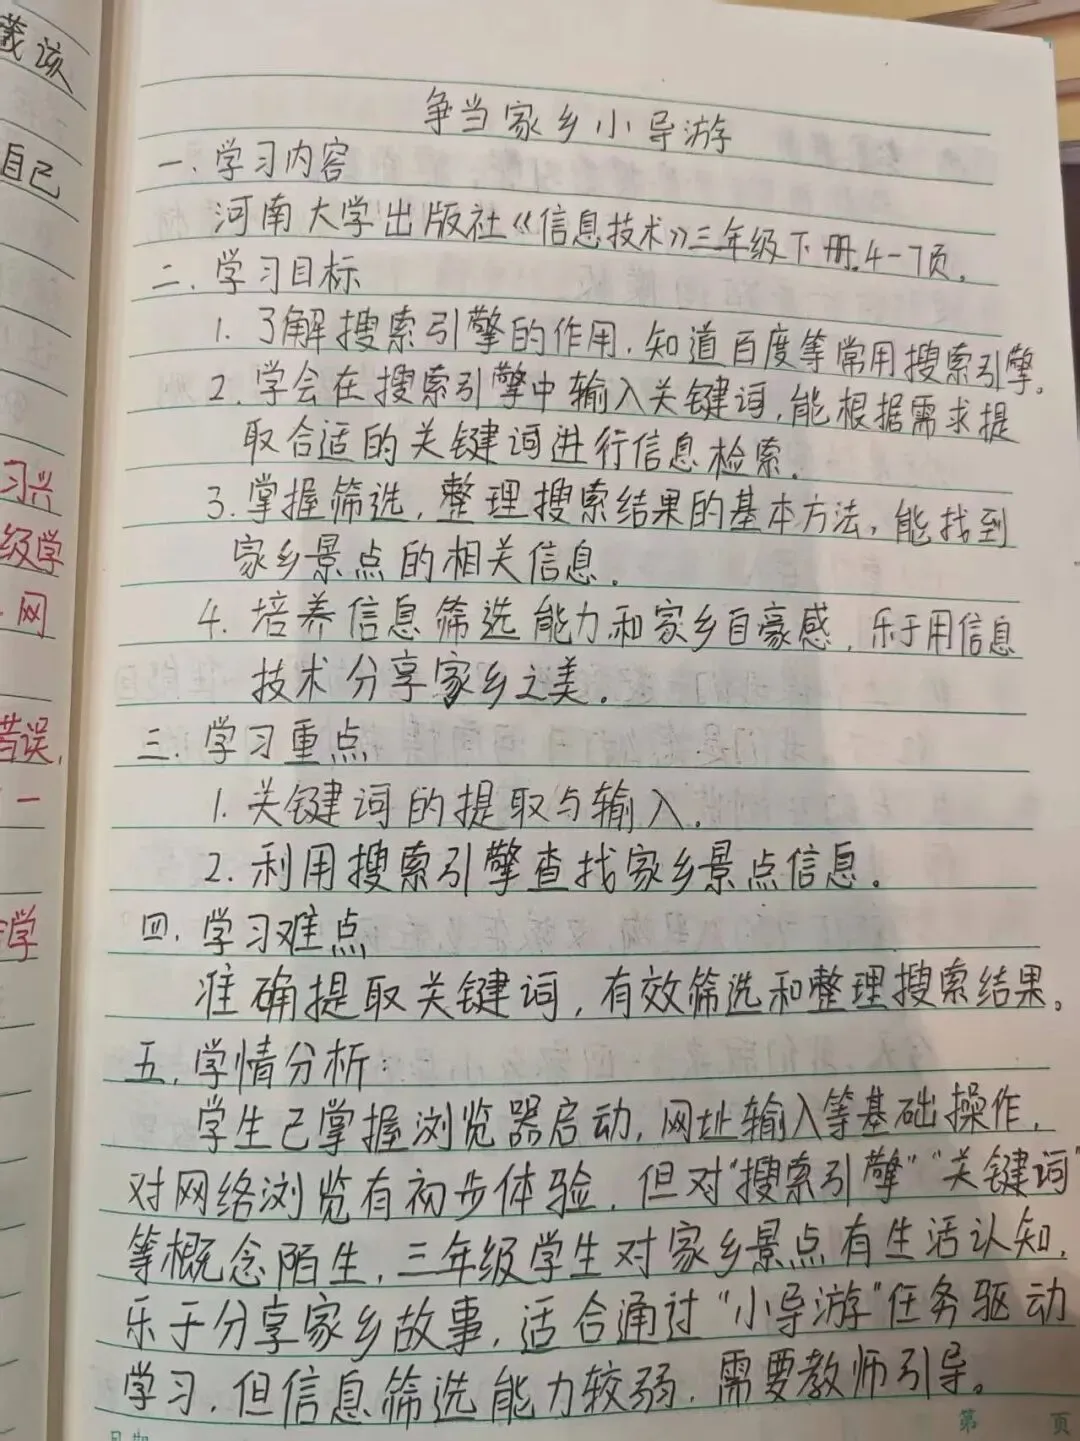 争当家乡小导游
一、学习内容
河南大学出版社《信息技术》三年级下册.4-7页。
二、学习目标
1. 了解搜索引擎的作用,知道百度等常用搜索引擎。
2. 学会在搜索引擎中输入关键词,能根据需求提
取合适的关键词进行信息检索。
3. 掌握筛选,整理搜索结果的基本方法,能找到
家乡景点的相关信息。
4. 培养信息筛选能力和家乡自豪感,乐于用信息
技术分享家乡之美。
三、学习重点
1. 关键词的提取与输入。
2. 利用搜索引擎查找家乡景点信息。
四、学习难点
准确提取关键词,有效筛选和整理搜索结果。
五、学情分析:
学生已掌握浏览器启动,网址输入等基础操作,
对网络浏览有初步体验,但对"搜索引擎""关键词"
等概念陌生,三年级学生对家乡景点有生活认知,
乐于分享家乡故事,适合通过"小导游"任务驱动
学习,但信息筛选能力较弱,需要教师引导。
第 页
该
自己
习兴
级学
网
错误,
一
学